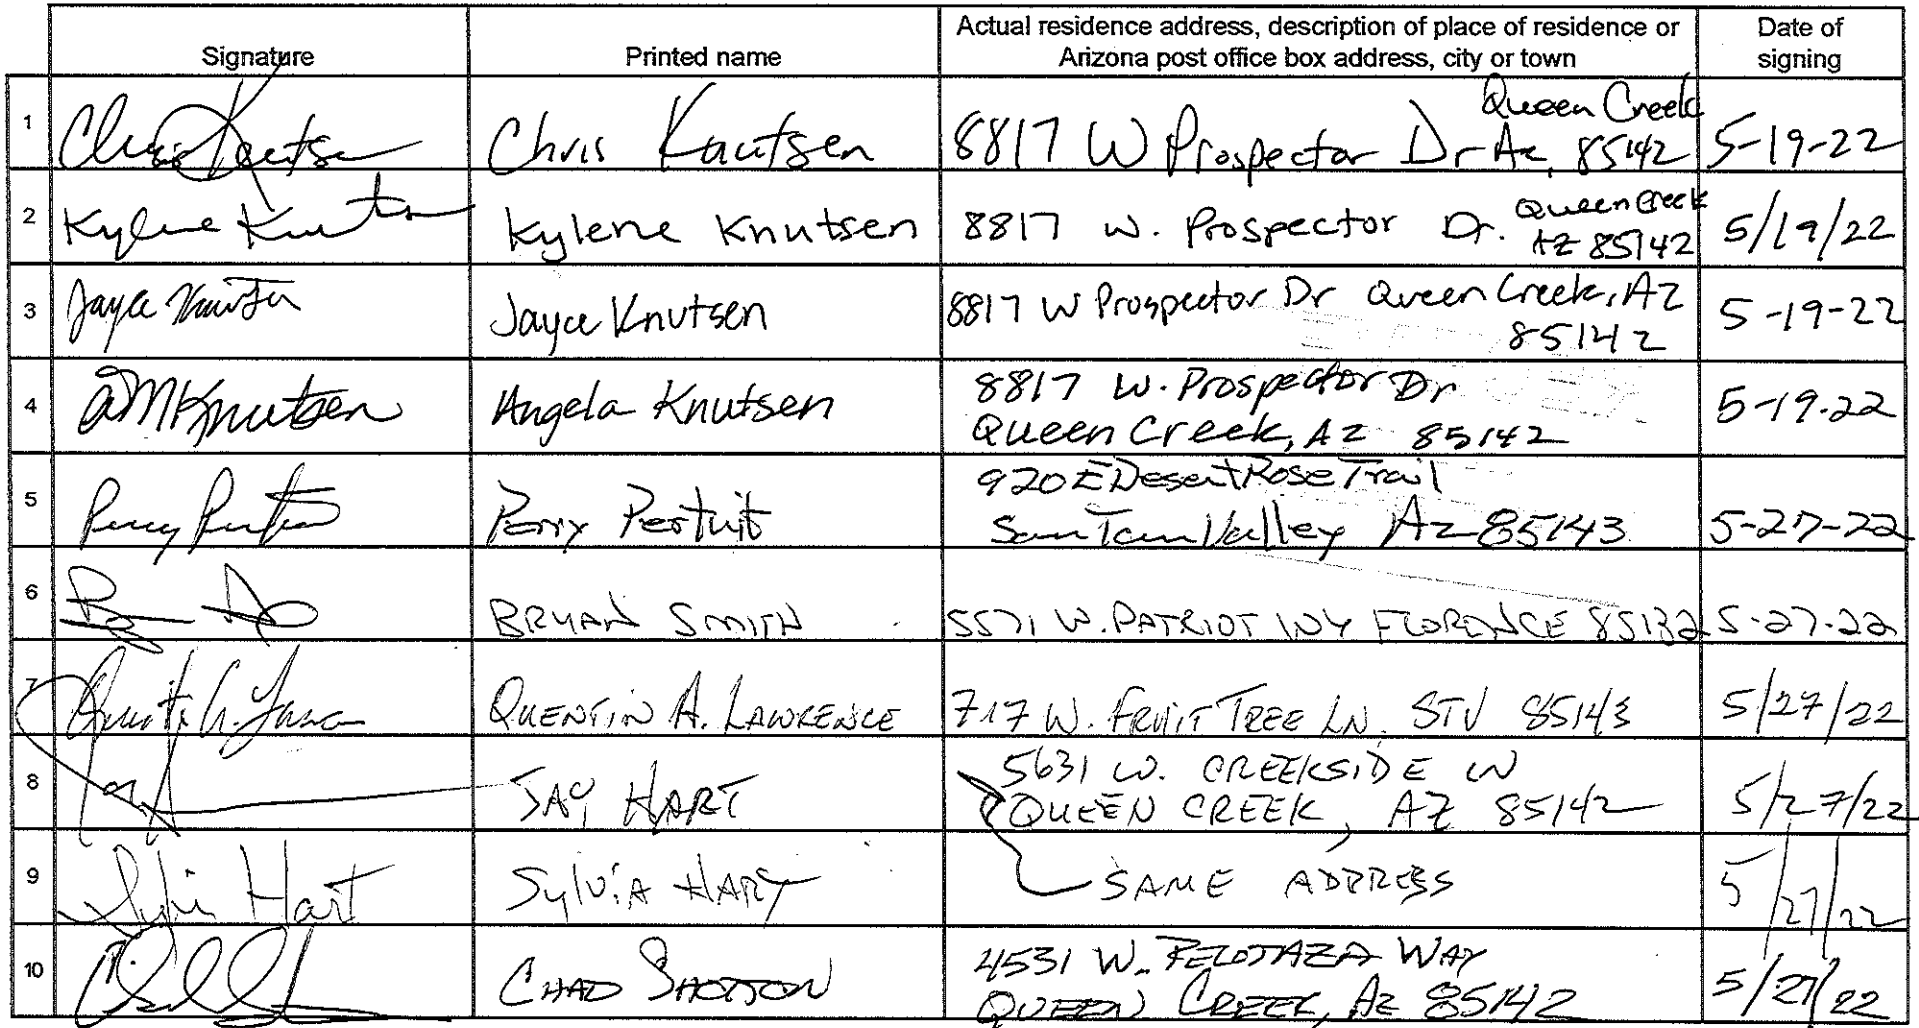 Signature Printed name Actual residence address, description of place of residence or Arizona post office box address, city or town Date of signing
1 Chris Knutsen Chris Knutsen 8817 W Prospector Dr Queen Creek Az, 85142 5-19-22
2 Kylene Knutsen Kylene Knutsen 8817 W. Prospector Dr. Queen Creek AZ 85142 5/19/22
3 Jayce Knutsen Jayce Knutsen 8817 W Prospector Dr Queen Creek, AZ 85142 5-19-22
4 AMKnutsen Angela Knutsen 8817 W. Prospector Dr Queen Creek, AZ 85142 5-19-22
5 Perry Pertuit Perry Pertuit 920 E Desert Rose Trail San Tan Valley Az 85143 5-27-22
6 BRYAN SMITH 5571 W. PATRIOT WY FLORENCE 85132 5-27-22
7 QUENTIN A. LAWRENCE 717 W. FRUIT TREE LN. STV 85143 5/27/22
8 JAY HART 5631 W. CREEKSIDE LN QUEEN CREEK, AZ 85142 5/27/22
9 Sylvia Hart Sylvia HART SAME ADDRESS 5/27/22
10 CHAD 4531 W. WAY QUEEN CREEK, AZ 85142 5/27/22